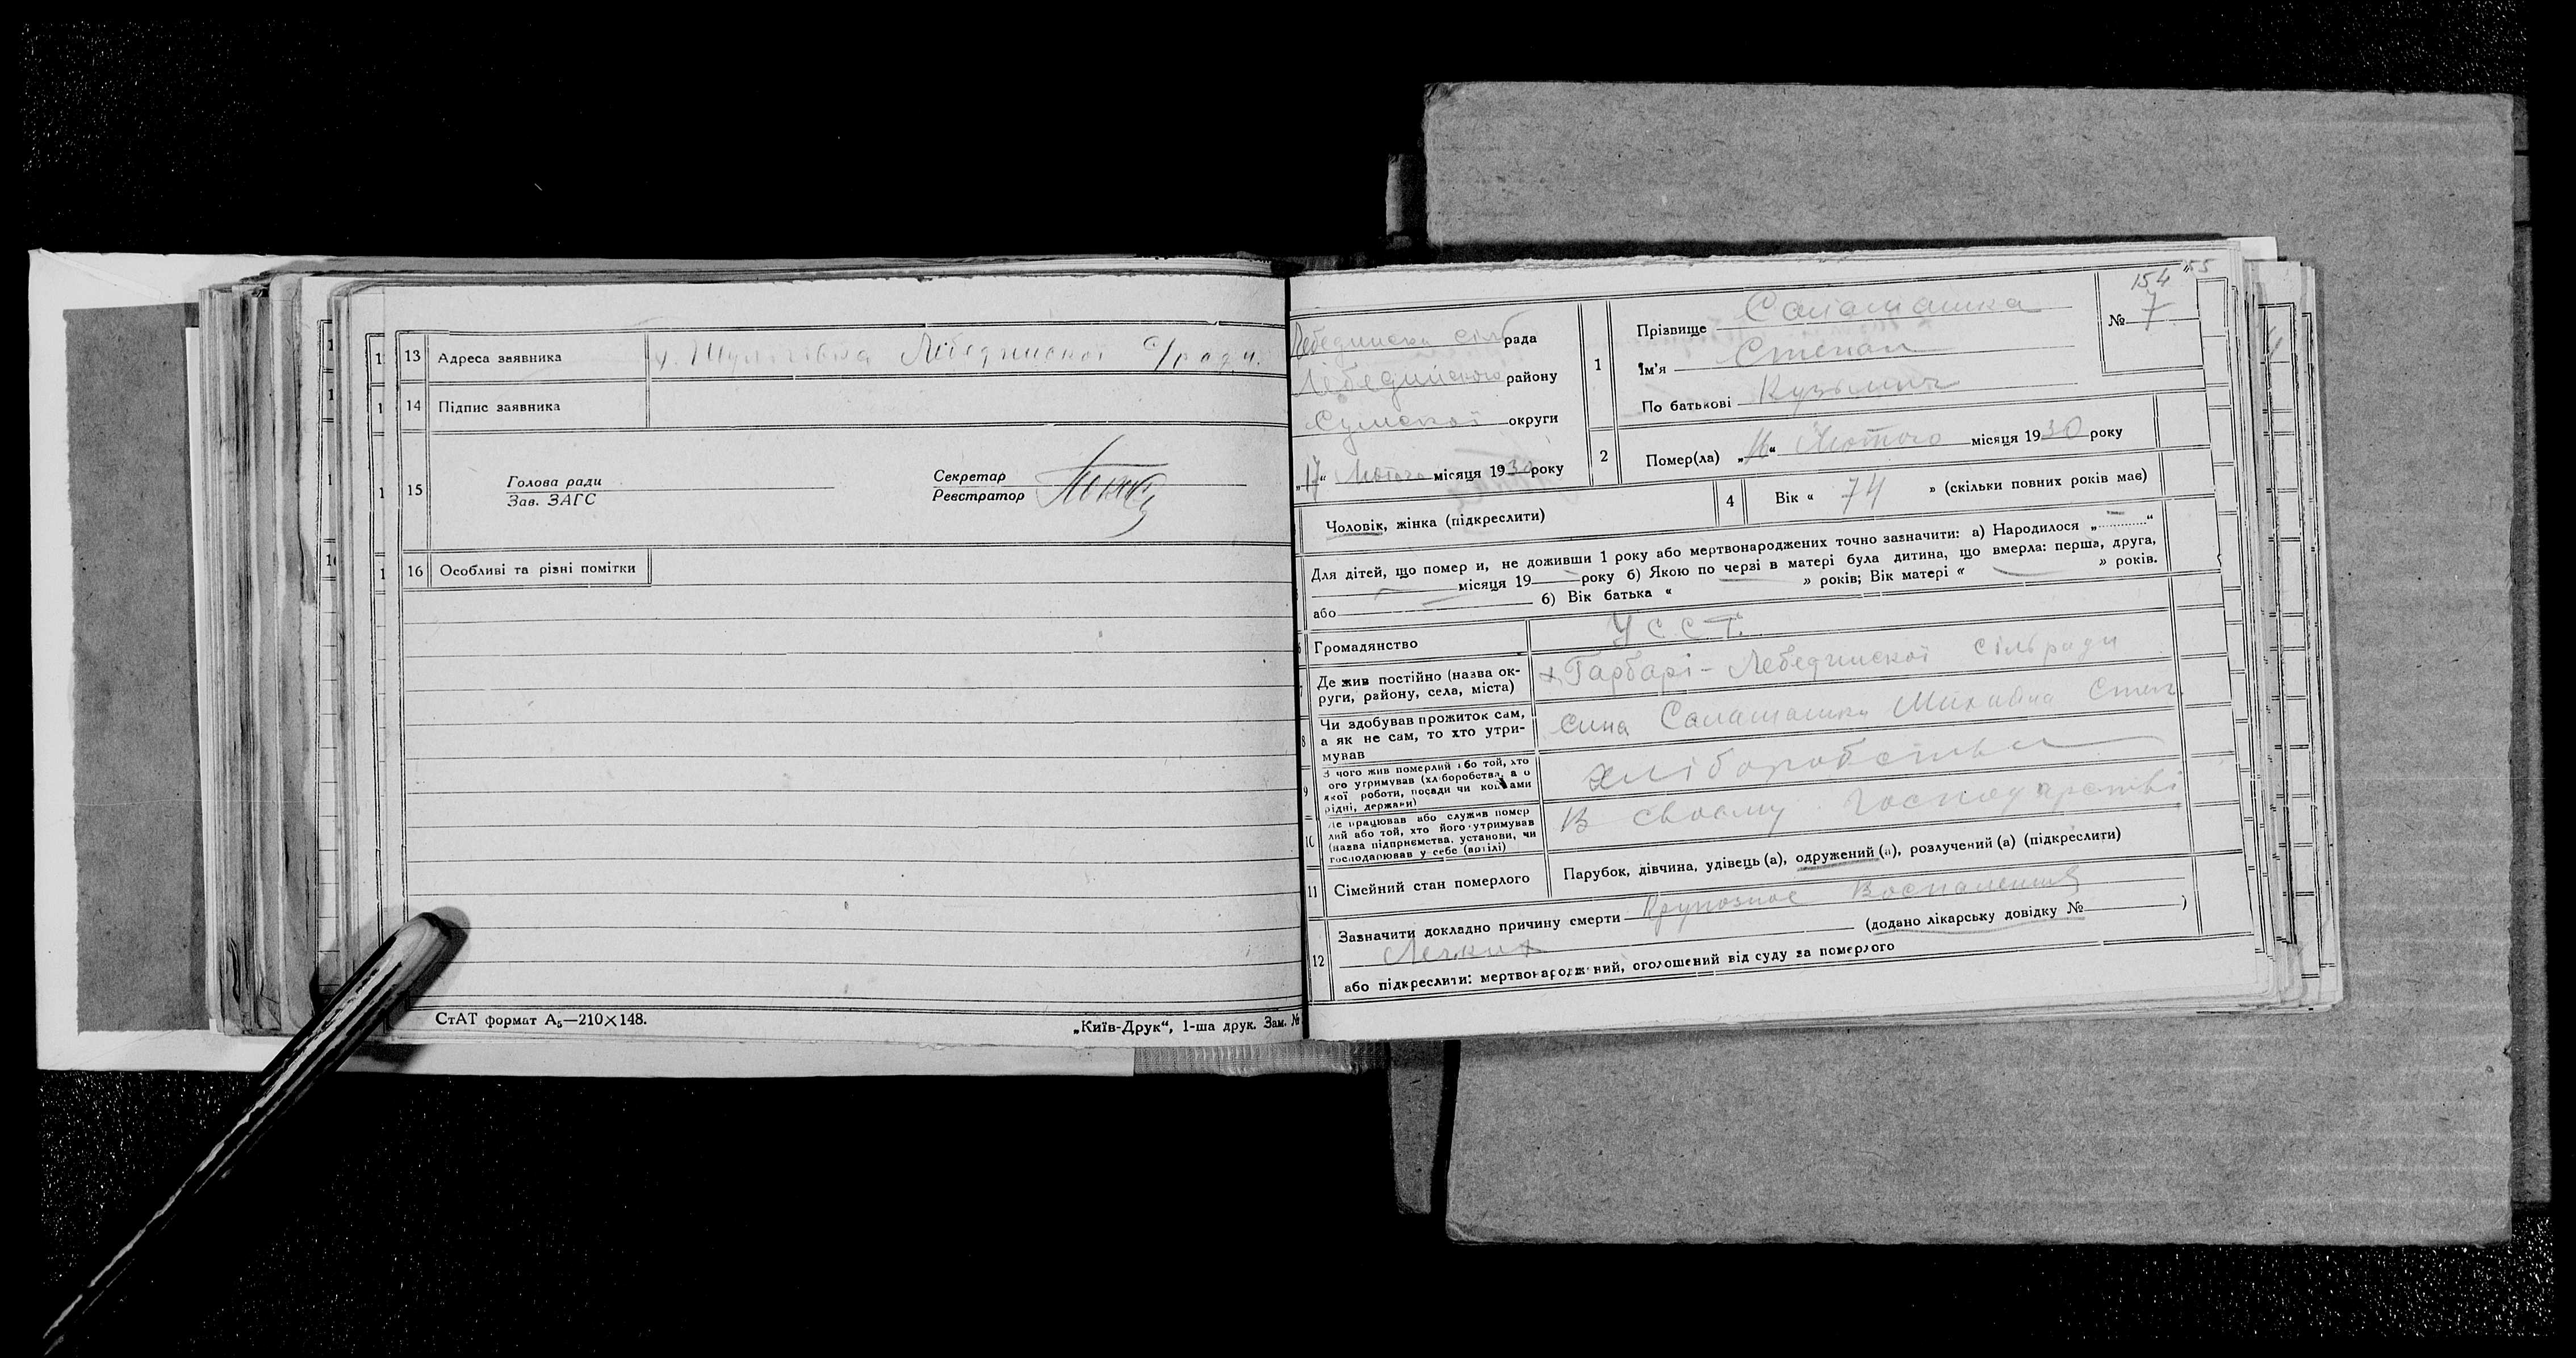 13 Адреса заявника х. Шульгівка Лебединської с/ради.
14 Підпис заявника
15 Голова ради
Зав. ЗАГС
Секретар
Реєстратор
16 Особливі та різні помітки
СтАТ формат А₅—210×148.
„Київ-Друк“, 1-ша друк. Зам. №
154 55
№ 7
Лебединська сільрада
Лебединського району
Сумської округи
„17“ Лютого місяця 1930 року
1 Прізвище Саламашка
Ім'я Степан
По батькові Кузьмич
2 Помер(ла) „16“ Лютого місяця 1930 року
Чоловік, жінка (підкреслити)
4 Вік « 74 » (скільки повних років має)
Для дітей, що помер и, не доживши 1 року або мертвонароджених точно зазначити: а) Народилося „ “
місяця 19 року б) Якою по черзі в матері була дитина, що вмерла: перша, друга,
або б) Вік батька « » років; Вік матері « » років.
Громадянство УССР.
Де жив постійно (назва ок-
руги, району, села, міста) х. Гарбарі - Лебединської сільради
8 Чи здобував прожиток сам,
а як не сам, то хто утри-
мував сина Саламашки Степ.
9 З чого жив померлий або той, хто
ого утримував (хліборобства, а о
якої роботи, посади чи коштами
рідні, держави) хліборобства
10 Де працював або служив помер
лий або той, хто його утримував
(назва підприємства, установи, чи
господарював у себе (артілі) В своєму господарстві
11 Сімейний стан померлого Парубок, дівчина, удівець (а), одружений (а), розлучений (а) (підкреслити)
12 Зазначити докладно причину смерти Крупозное Воспаление
Легких (додано лікарську довідку № )
або підкреслити: мертвонароджений, оголошений від суду за померлого